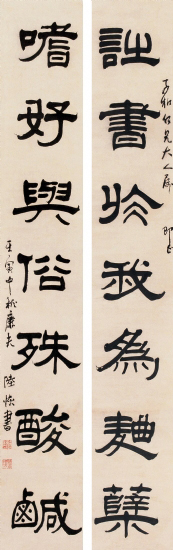 子和仁兄大人屬 即正
詩書於我為麯糵
嗜好與俗殊酸鹹
壬寅中秋廉夫陸恢書